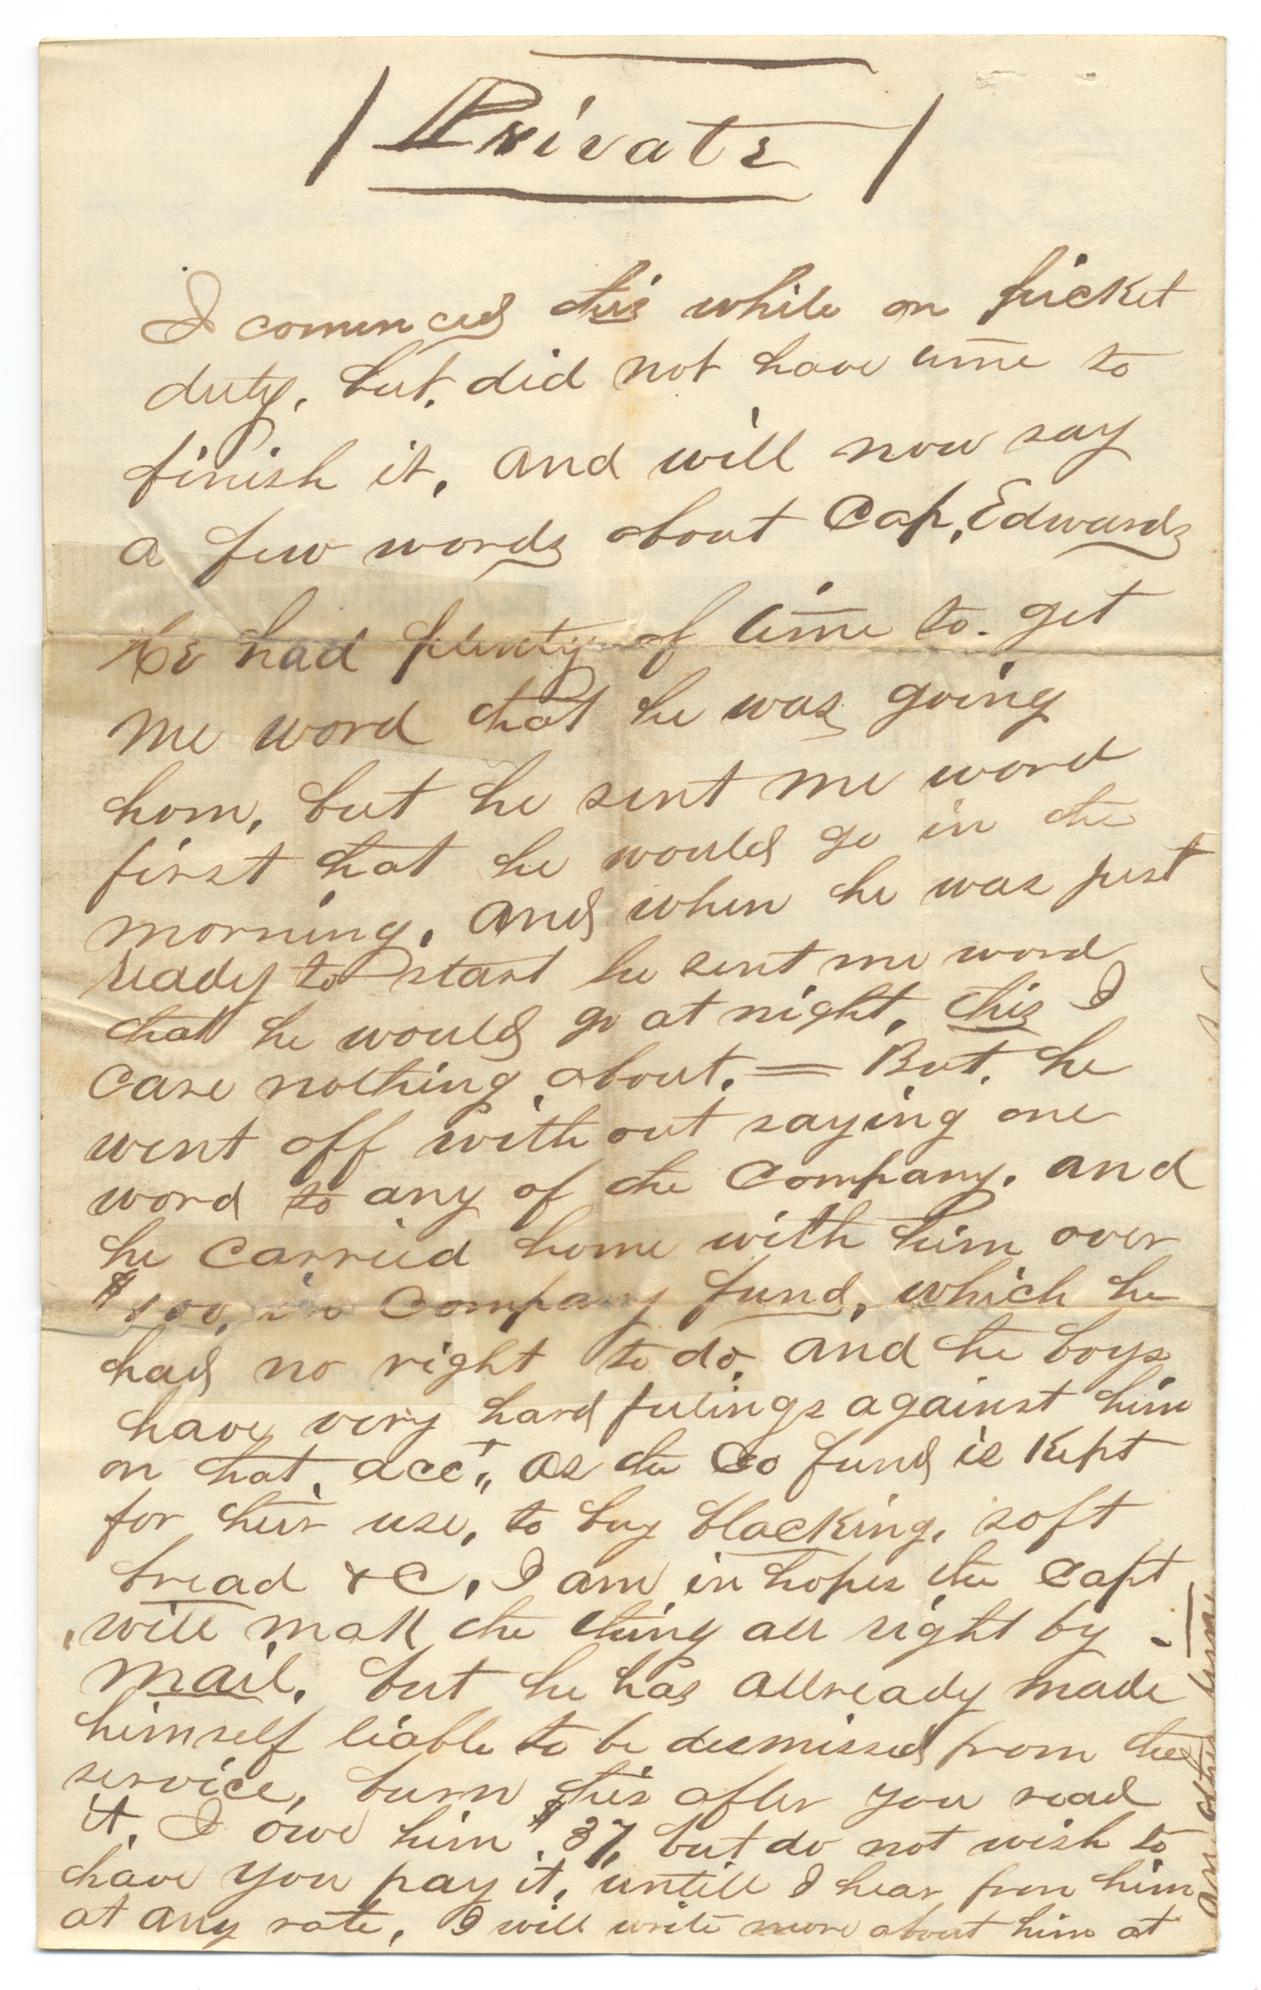 Private
I comenced this while on picket
duty, but did not have time to
finish it, and will now say
a few words about Cap, Edwards
He had plenty of time to get
me word that he was going
hom, but he sent me word
first that he would go in the
morning, and when he was just
ready to start he sent me word
that he would go at night, this I
care nothing about. = But, he
went off without saying one
word to any of the Company, and
he carried home with him over
$100, in Company fund, which he
had no right to do, and the boys
have very hard feelings against him
on that, acct,, as the Co fund is kept
for their use, to buy blacking, soft
bread &C, I am in hopes the Capt
will mak the thing all right by -
mail, but he has allready made
himself liable to be dismissed from the
service, burn this after you read
it. I owe him $37, but do not wish to
have you pay it, untill I hear from him
at any rate, I will write more about him at
an other time